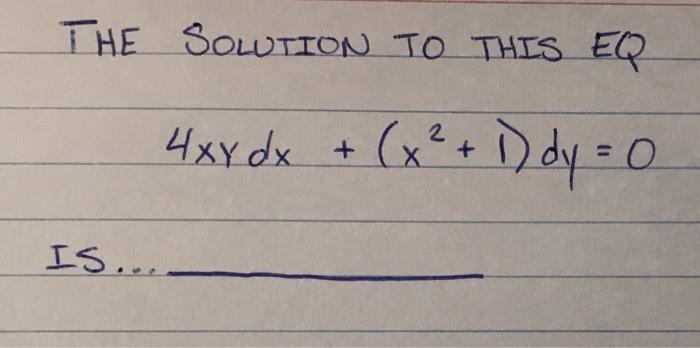 THE SOLUTION TO THIS EQ
4xydx + (x² + 1) dy = 0
IS...